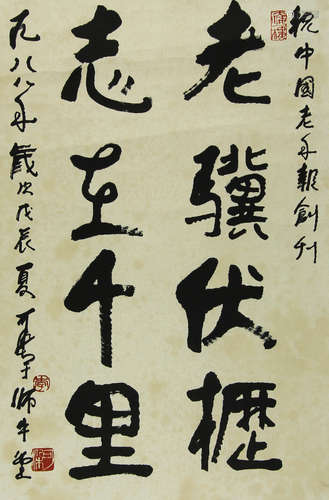 祝中国老年报创刊
老骥伏枥
志在千里
一九八八年岁次戊辰夏可染于师牛堂